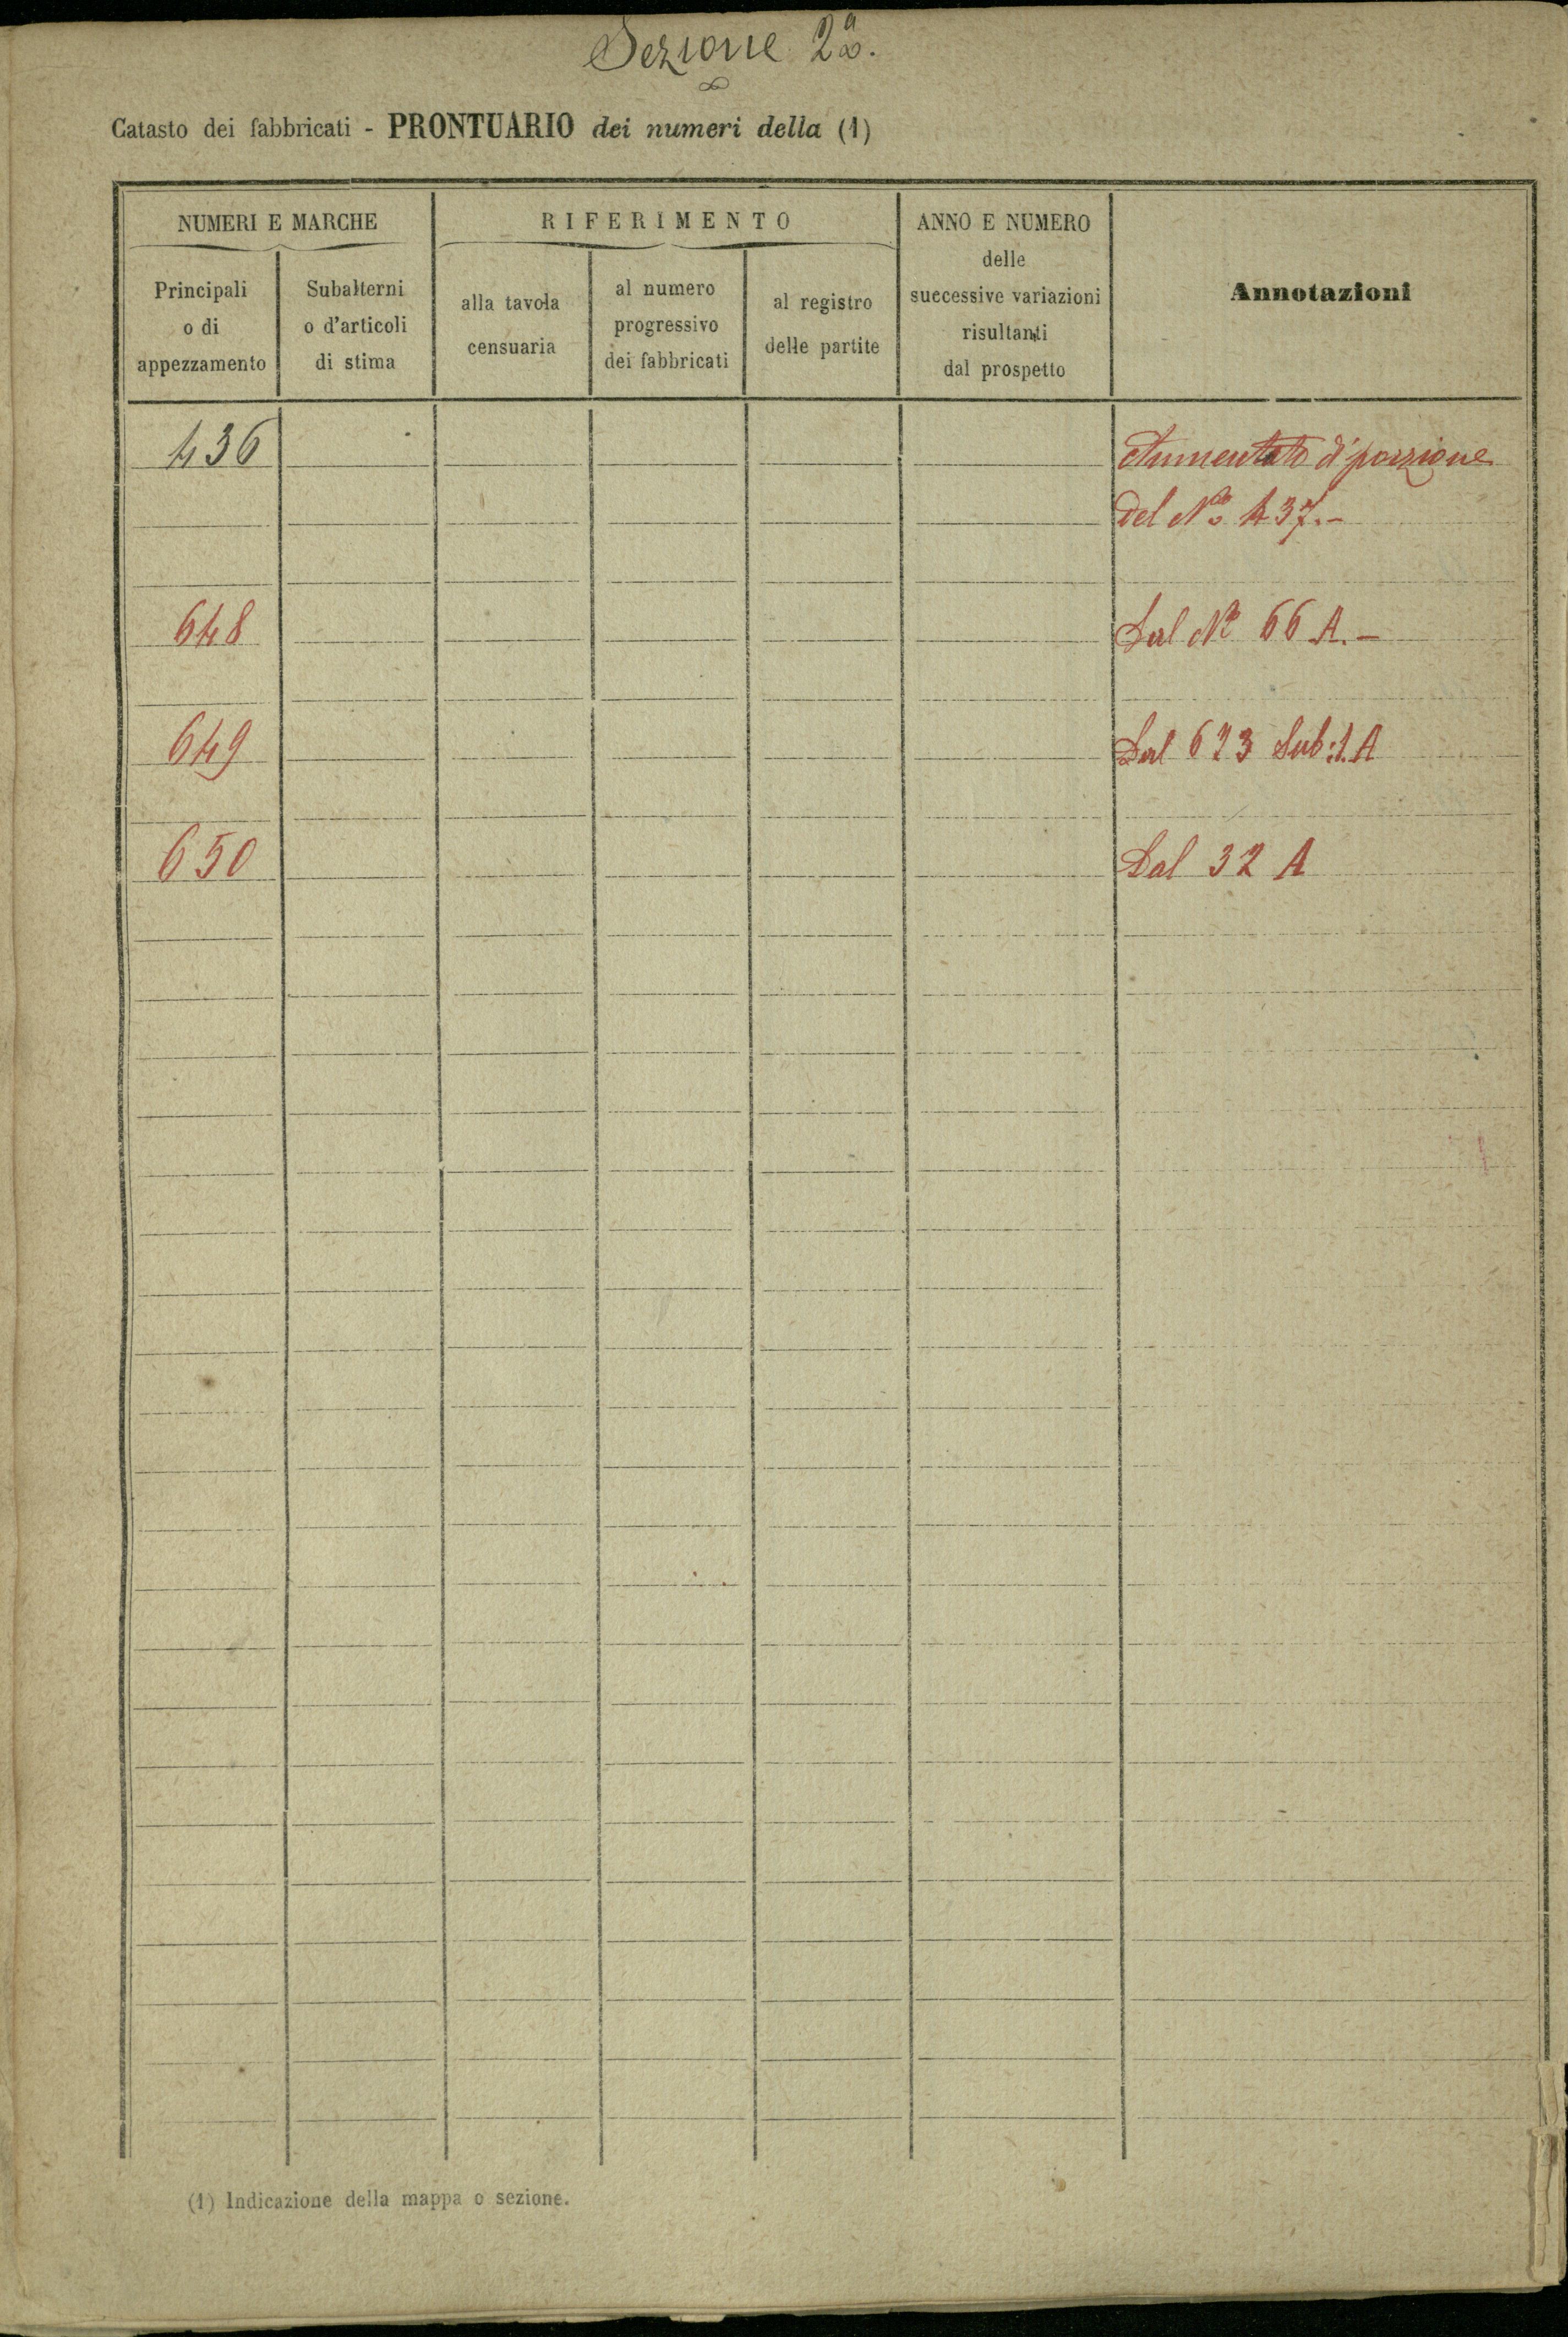 Sezione 2ª.
Catasto dei fabbricati - PRONTUARIO dei numeri della (1)
NUMERI E MARCHE
RIFERIMENTO
ANNO E NUMERO
delle
successive variazioni
risultanti
dal prospetto
Annotazioni
Principali
o di
appezzamento
Subalterni
o d'articoli
di stima
alla tavola
censuaria
al numero
progressivo
dei fabbricati
al registro
delle partite
436 Aumentato di porzione
del Nº 437.-
648 Dal Nº 66 A.-
649 Dal 623 Sub: 1. A
650 Dal 32 A
(1) Indicazione della mappa o sezione.